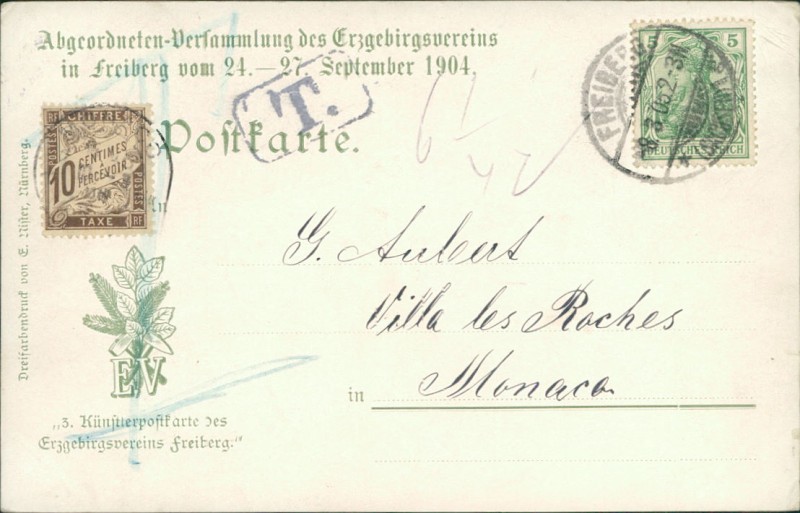 Abgeordneten-Versammlung des Erzgebirgsvereins
in Freiberg vom 24.—27. September 1904.
T.
Postkarte.
5 5
DEUTSCHES REICH
FREIBERG
CHIFFRE
POSTES RF
10 CENTIMES
À PERCEVOIR
POSTES RF
TAXE
An
G. Aubert
Villa les Roches
in Monaco
EV
„3. Künstlerpostkarte des
Erzgebirgsvereins Freiberg."
Dreifarbendruck von E. Nister, Nürnberg.